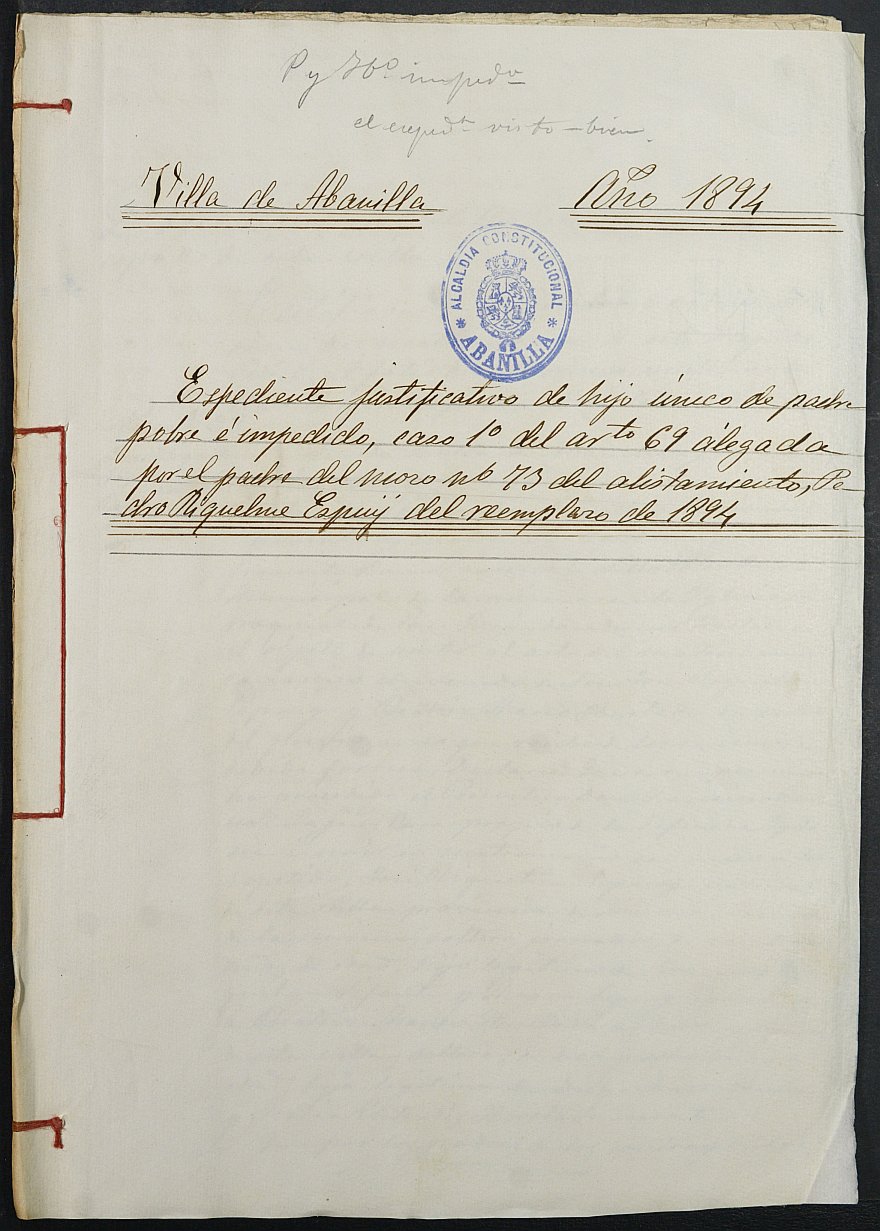 P y H.º imped.º
el exped.te visto - bien
Villa de Abanilla
Año 1894
ALCALDIA CONSTITUCIONAL
* ABANILLA *
Espediente justificativo de hijo único de padre
pobre é impedido, caso 1º del artº 69 álegada
por el padre del mozo nº 73 del alistamiento, Pe-
dro Riquelme Espuÿ del reemplazo de 1894